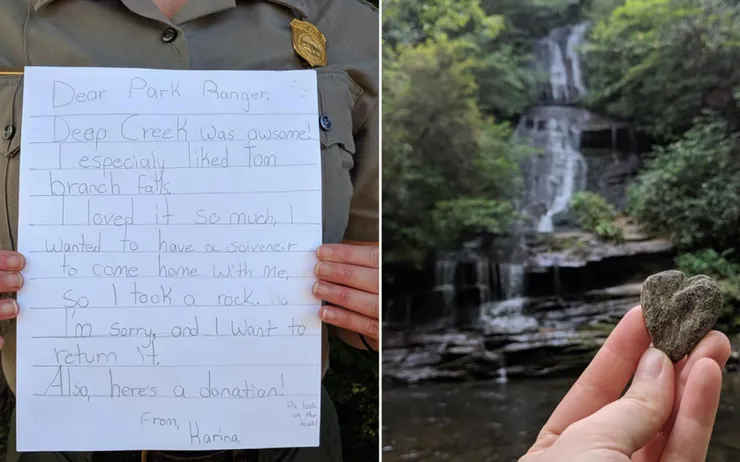 Dear Park Ranger,
Deep Creek was awsome!
I especialy liked Tom
branch falls.
I loved it so much, I
wanted to have a soivenir
to come home with me,
so I took a rock.
I'm sorry, and I want to
return it.
Also, here's a donation!
From,
Karina
Ps. look
at the
back!